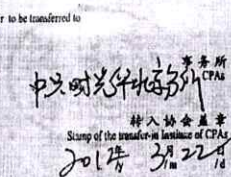 r to be transferred to
事务所
CPAs
转入协会盖章
Stamp of the transfer-in Institute of CPAs
2012年 3月 22日
/y /m /d